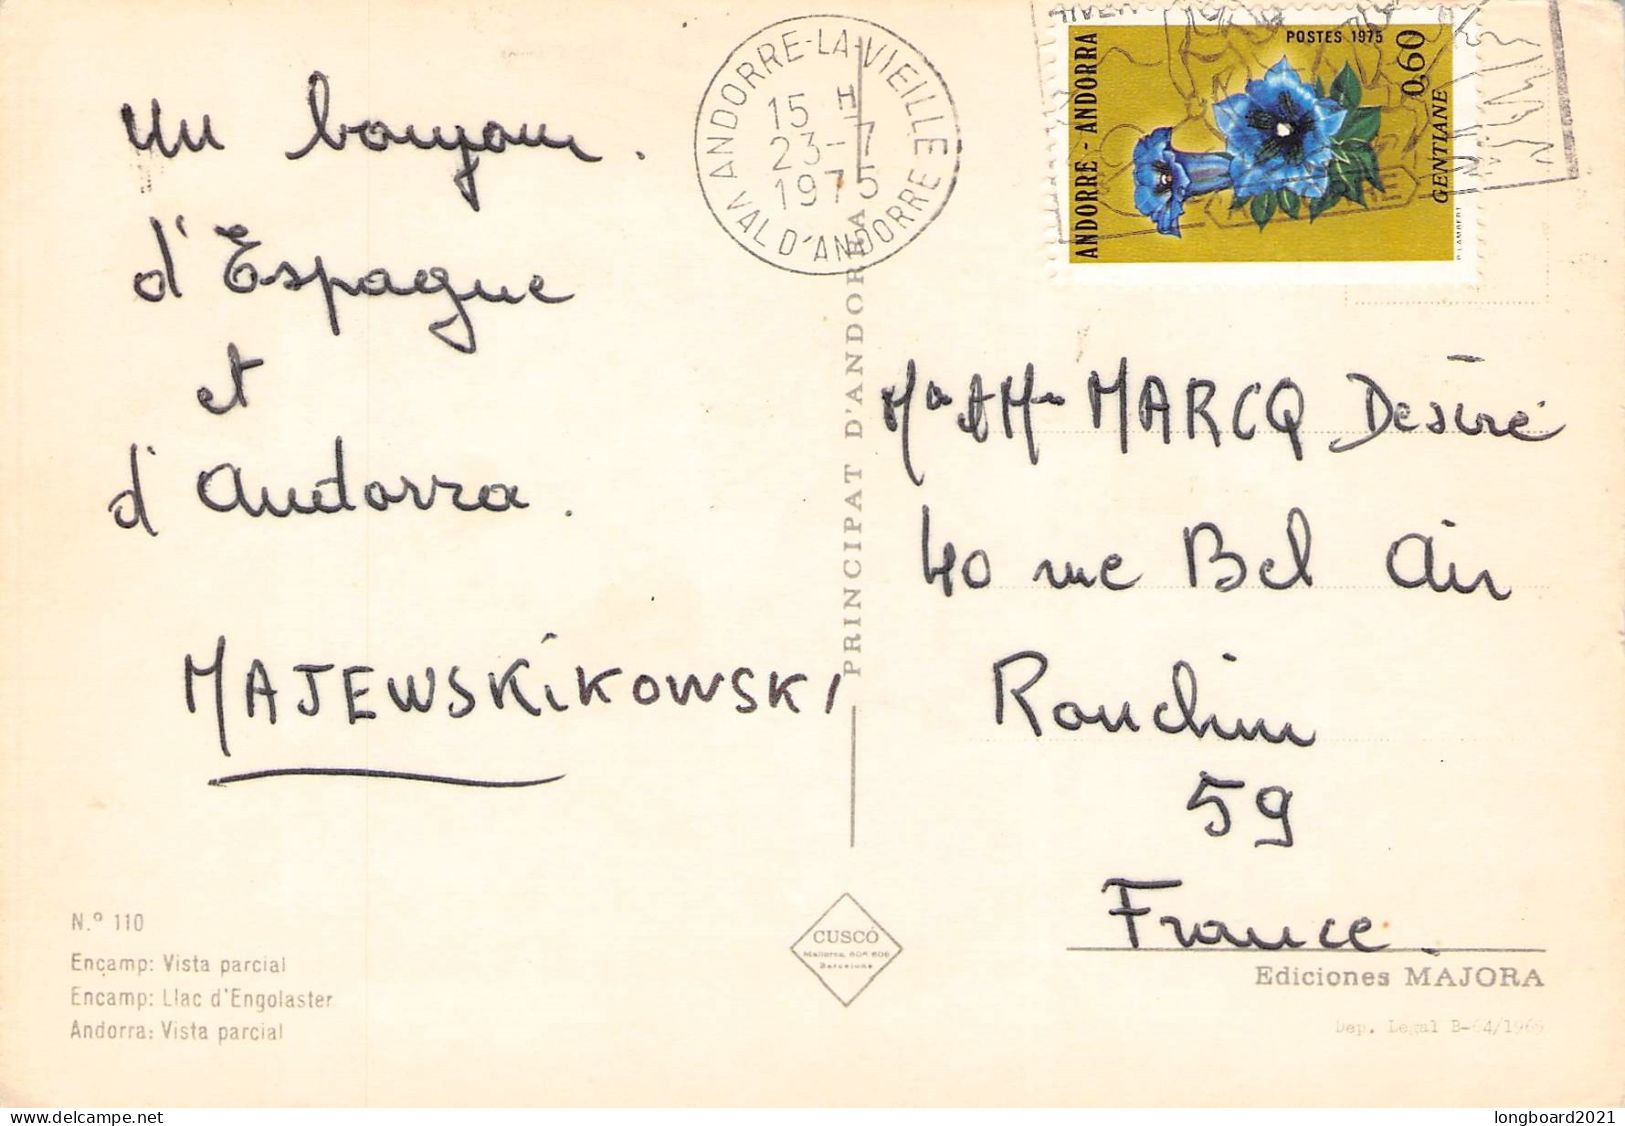 Un bonjour.
d'Espagne
et
d'Andorra.
MAJEWSKiKOWSKI
N.º 110
Ençamp: Vista parcial
Encamp: Llac d'Engolaster
Andorra: Vista parcial
ANDORRE-LA-VIEILLE
15 H
23-7
1975
VAL D'ANDORRE
PRINCIPAT D'ANDORRA
CUSCÓ
Barcelona
ANDORRE - ANDORRA
POSTES 1975
0,60
GENTIANE
P.LAMBERT
MARCQ Désiré
40 rue Bel Air
Ronchin
59
France.
Ediciones MAJORA
Dep. Legal B-64/1965
delcampe.net
longboard2021